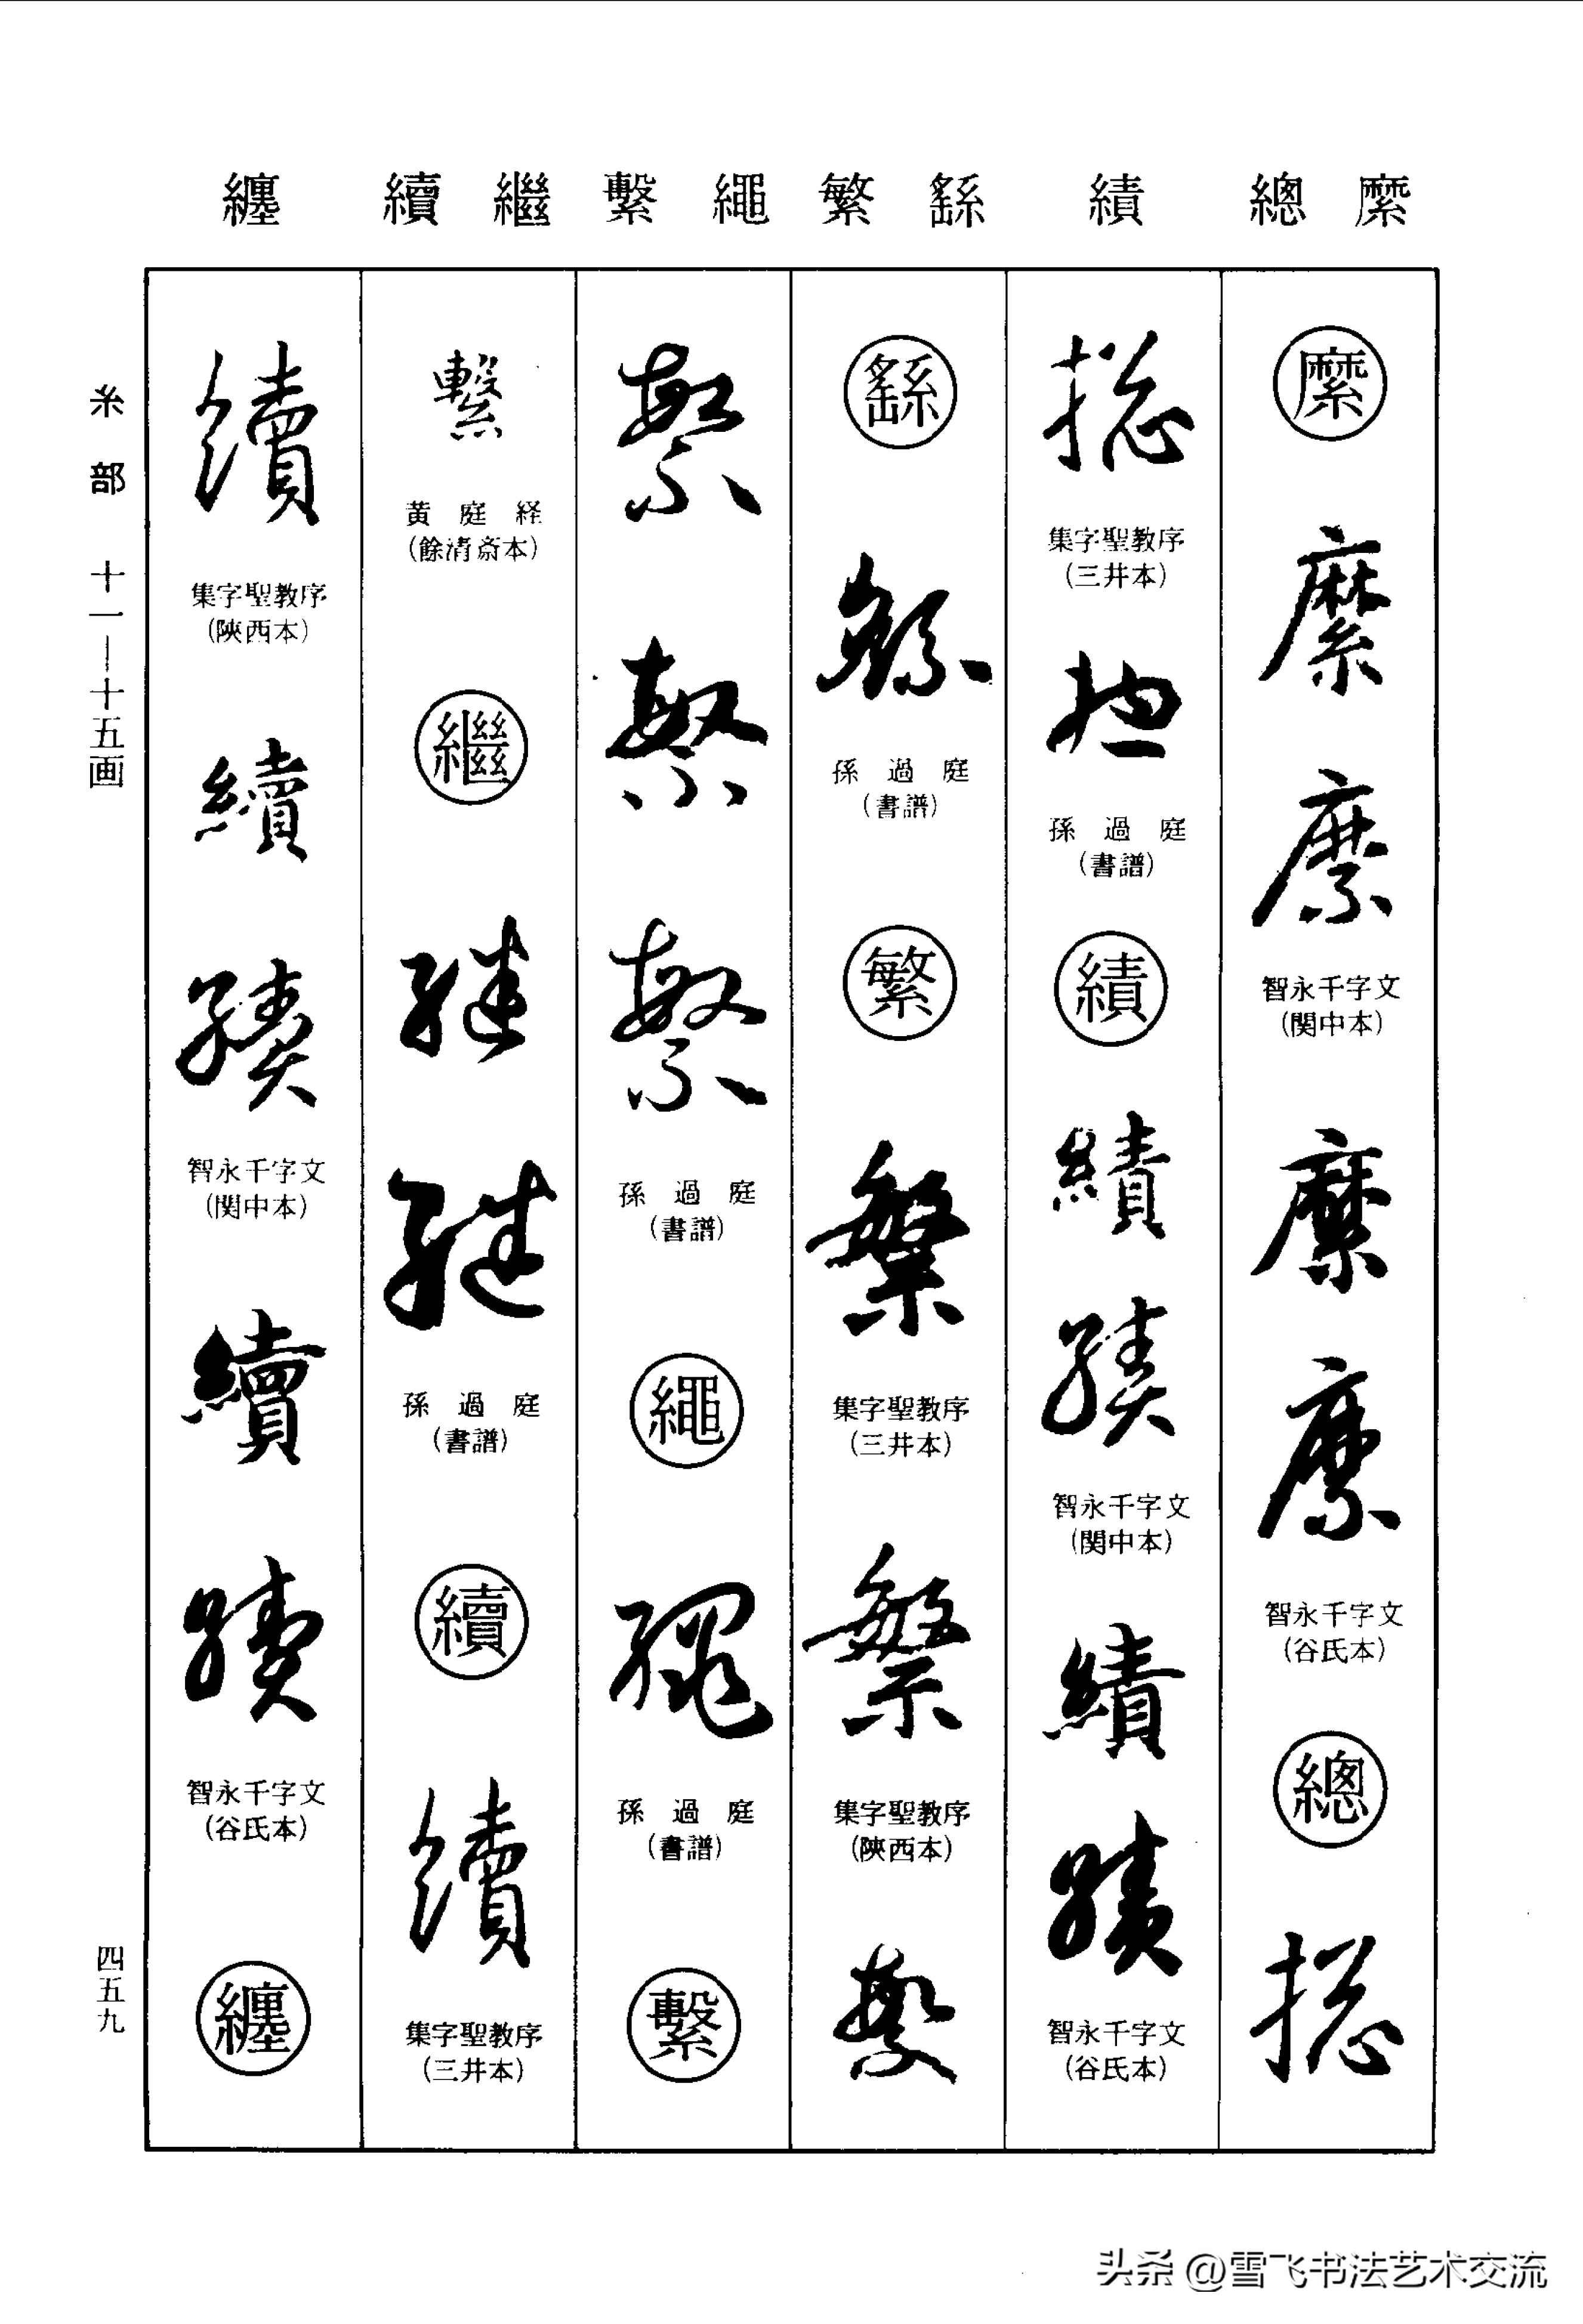 縻 總 績 繇 繁 繩 繫 繼 續 纏
縻
縻
縻
智永千字文
(関中本)
縻
縻
智永千字文
(谷氏本)
總
總
總
集字聖教序
(三井本)
總
孫過庭
(書譜)
績
績
績
智永千字文
(関中本)
績
績
智永千字文
(谷氏本)
繇
繇
孫過庭
(書譜)
繁
繁
集字聖教序
(三井本)
繁
集字聖教序
(陝西本)
繁
繁
繁
繁
孫過庭
(書譜)
繩
繩
孫過庭
(書譜)
繫
繫
黄庭経
(餘清斎本)
繼
繼
繼
孫過庭
(書譜)
續
續
集字聖教序
(三井本)
續
集字聖教序
(陝西本)
續
續
智永千字文
(関中本)
續
續
智永千字文
(谷氏本)
纏
糸部 十一—十五画
四五九
头条@雪飞书法艺术交流